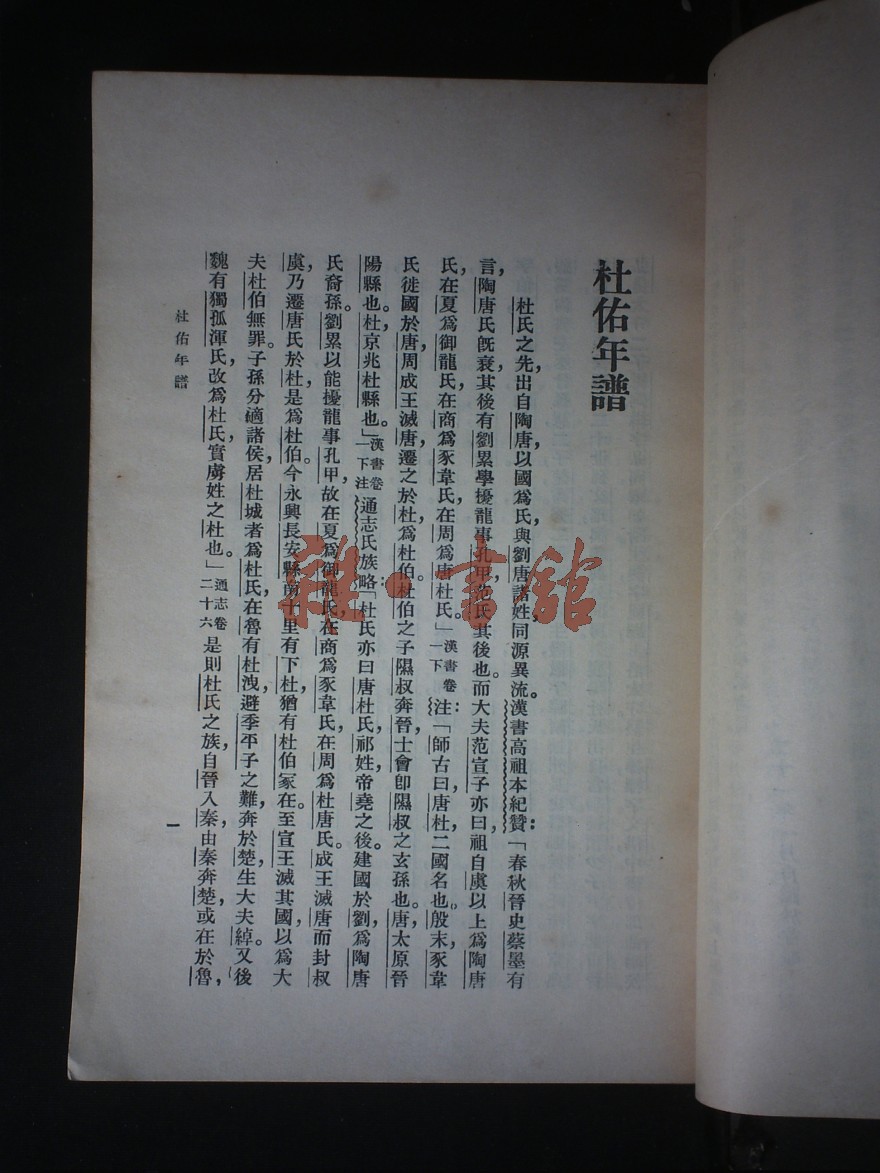 杜佑年譜
杜氏之先出自陶唐，以國爲氏，與劉唐諸姓同源異流。漢書高祖本紀贊：「春秋晉史蔡墨有
言，陶唐氏旣衰，其後有劉累，學擾龍，事孔甲，范氏其後也。而大夫范宣子亦曰，祖自虞以上爲陶唐
氏，在夏爲御龍氏，在商爲豕韋氏，在周爲唐杜氏。」漢書卷一下注：「師古曰，唐，杜二國名也。殷末，豕韋
氏徙國於唐，周成王滅唐，遷之於杜，爲杜伯。杜伯之子隰叔奔晉，士會卽隰叔之玄孫也。唐，太原晉
陽縣也。杜，京兆杜縣也。」漢書卷一下注通志氏族略：「杜氏亦曰唐杜氏，祁姓，帝堯之後。建國於劉，爲陶唐
氏裔孫。劉累以能擾龍事孔甲，故在夏爲御龍氏，在商爲豕韋氏，在周爲杜唐氏。成王滅唐而封叔
虞，乃遷唐氏於杜，是爲杜伯。今永興長安縣南十里有下杜，猶有杜伯冢在。至宣王滅其國，以爲大
夫杜伯無罪。子孫分適諸侯，居杜城者爲杜氏，在魯有杜洩，避季平子之難，奔於楚，生大夫綽。又後
魏有獨孤渾氏，改爲杜氏，實虜姓之杜也。」通志卷二十六是則杜氏之族，自晉入秦，由秦奔楚，或在於魯，
杜佑年譜
一
雜·書館